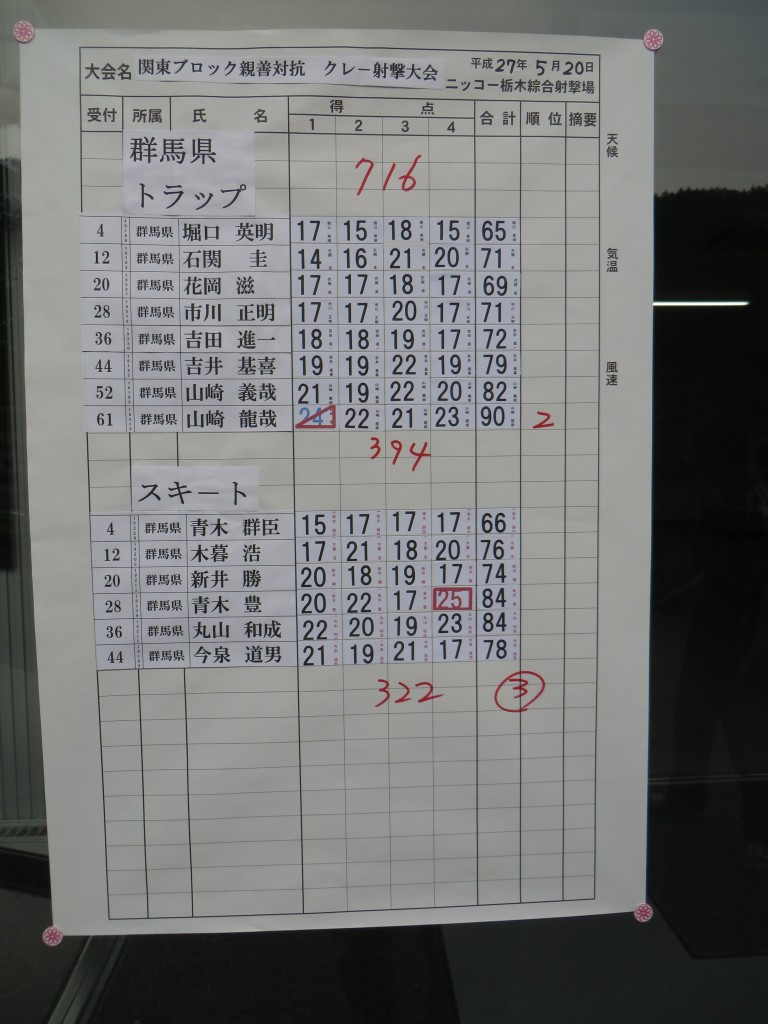 大会名 関東ブロック親善対抗 クレー射撃大会 平成27年5月20日
ニッコー栃木綜合射撃場
受付 所属 氏 名 得 点 合計 順位 摘要
1 2 3 4
天候
気温
風速
群馬県
トラップ
716
4 群馬県 堀口 英明 17 15 18 15 65
12 群馬県 石関 圭 14 16 21 20 71
20 群馬県 花岡 滋 17 17 18 17 69
28 群馬県 市川 正明 17 17 20 17 71
36 群馬県 吉田 進一 18 18 19 17 72
44 群馬県 吉井 基喜 19 19 22 19 79
52 群馬県 山崎 義哉 21 19 22 20 82
61 群馬県 山崎 龍哉 24 22 21 23 90 2
394
スキート
4 群馬県 青木 群臣 15 17 17 17 66
12 群馬県 木暮 浩 17 21 18 20 76
20 群馬県 新井 勝 20 18 19 17 74
28 群馬県 青木 豊 20 22 17 25 84
36 群馬県 丸山 和成 22 20 19 23 84
44 群馬県 今泉 道男 21 19 21 17 78
322 ③